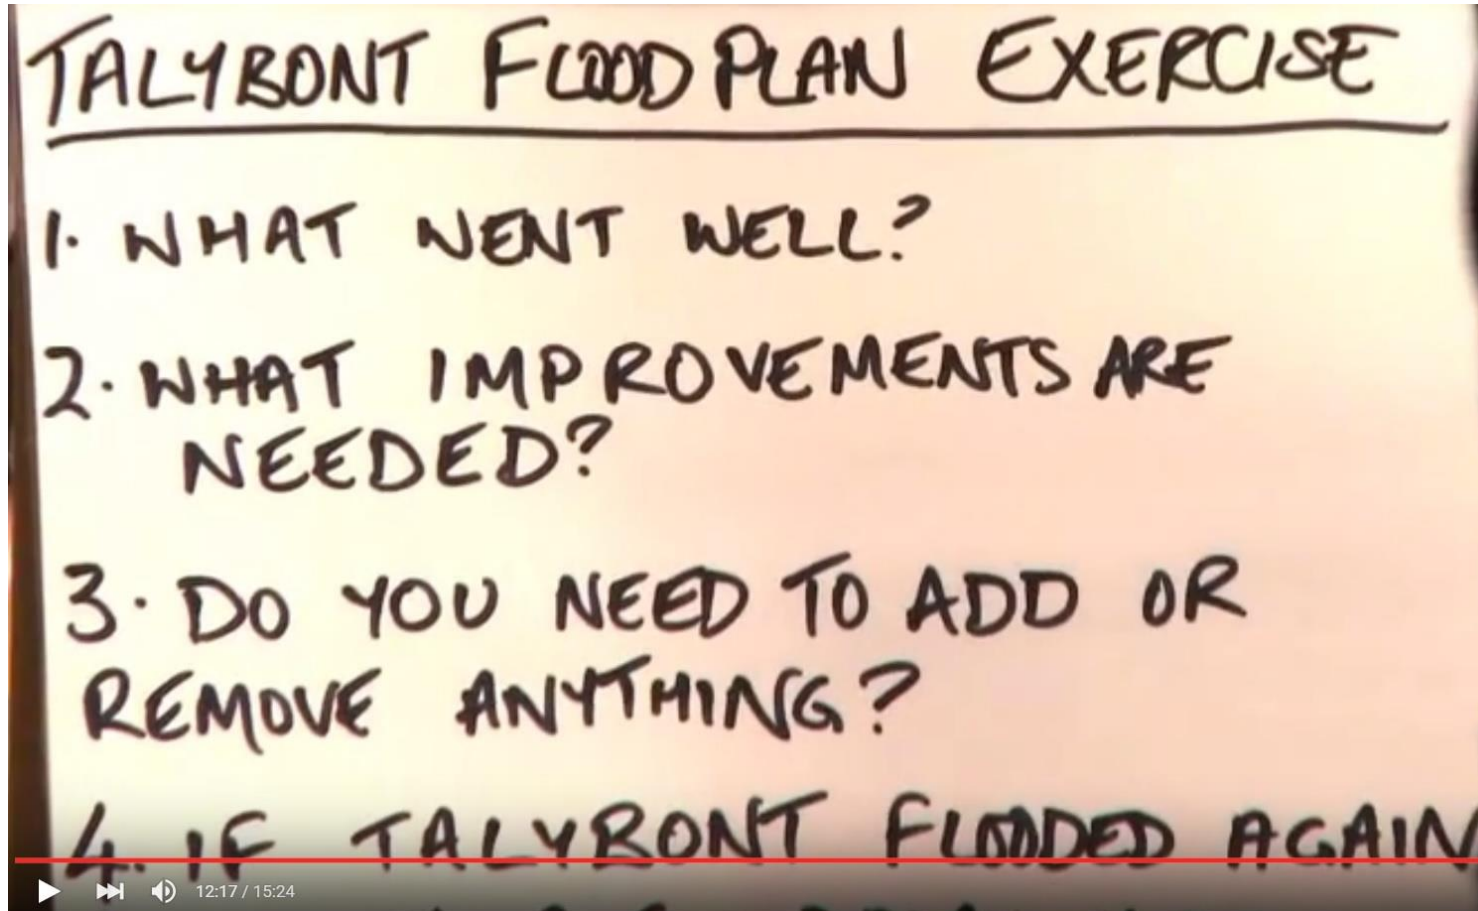 TALYBONT FLOOD PLAN EXERCISE
1. WHAT WENT WELL?
2. WHAT IMPROVEMENTS ARE
NEEDED?
3. DO YOU NEED TO ADD OR
REMOVE ANYTHING?
4. IF TALYBONT FLOODED AGAIN
12:17 / 15:24